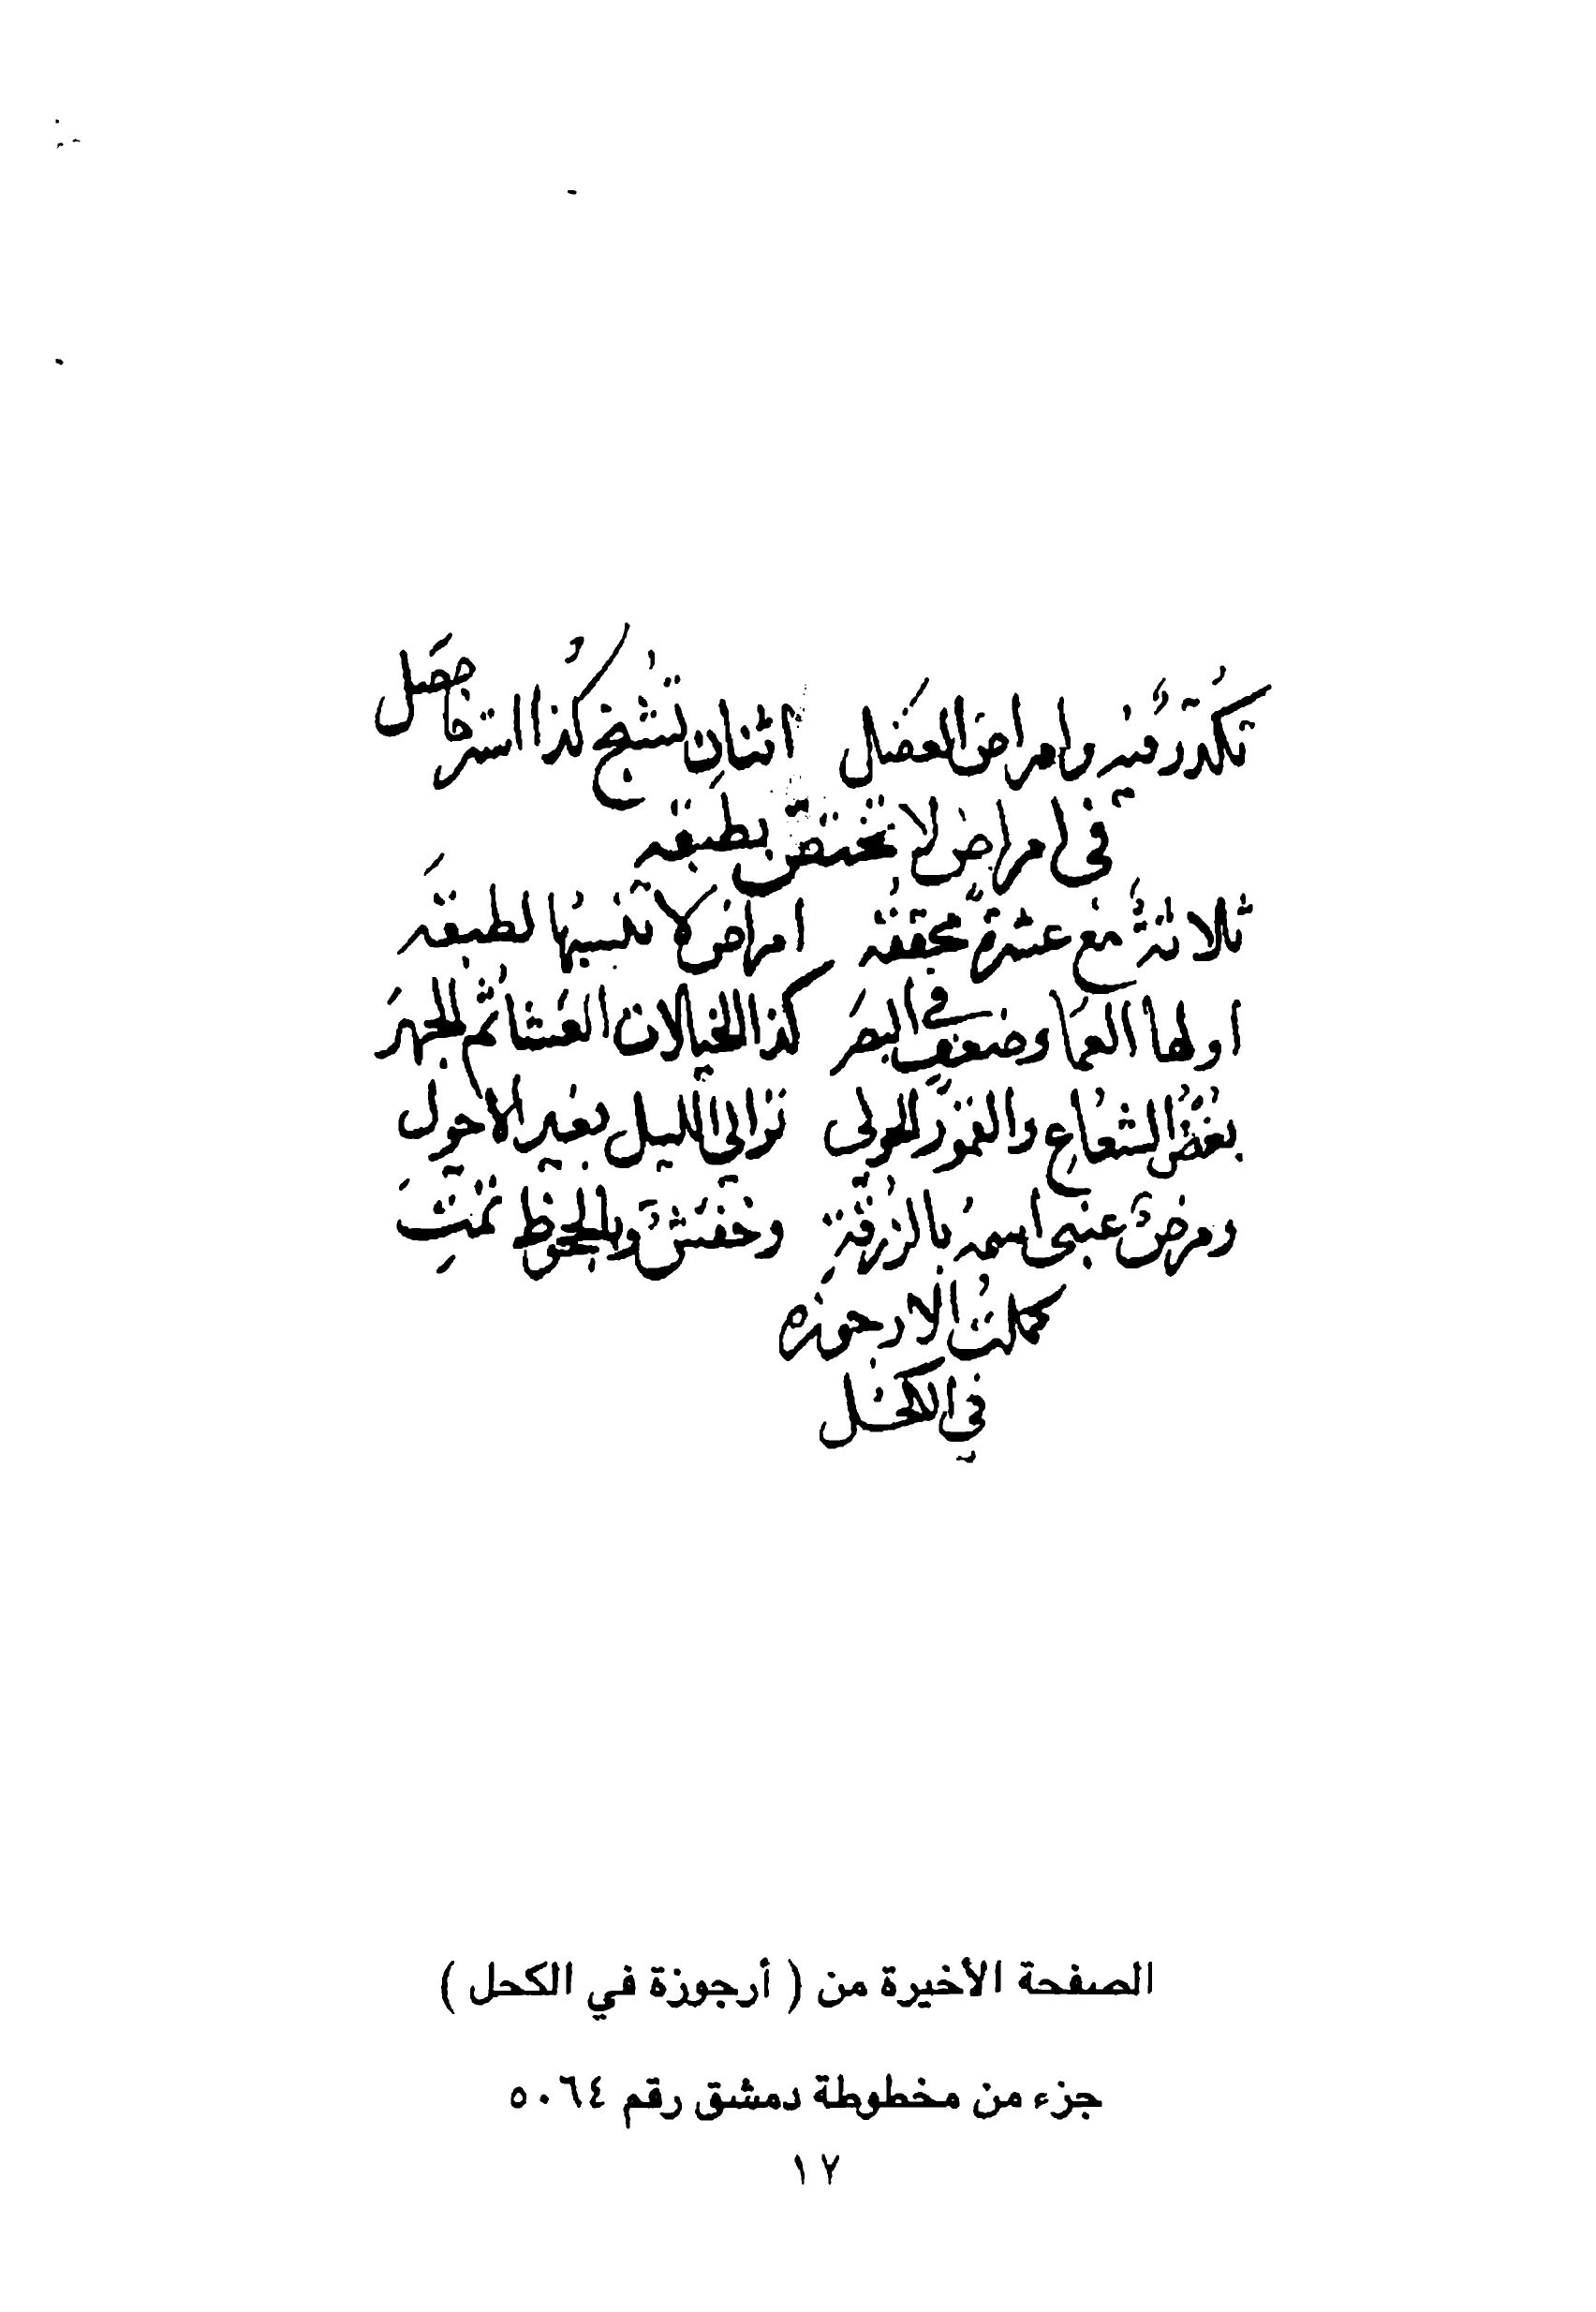 تكدر فيه وامراض العضل اثنان تشنج كذا استرخا حصل
في امراض لا تختص بطبقه
ثلاثة مع عشرة محققه امراض لا تنسبها لطبقه
اولها العما وضعف في البصر كذا الخيالات العشا ثم الجهر
بغض الشعاع والغور للمولى بالليل بغير الاحول
ومرض عنبى اسمه بالزرقة وخفش وبالجحوظ تمت
كملت الارجوزه
في الكحل
الصفحة الأخيرة من ( أرجوزة في الكحل )
جزء من مخطوطة دمشق رقم ٥٠٦٤
١٧